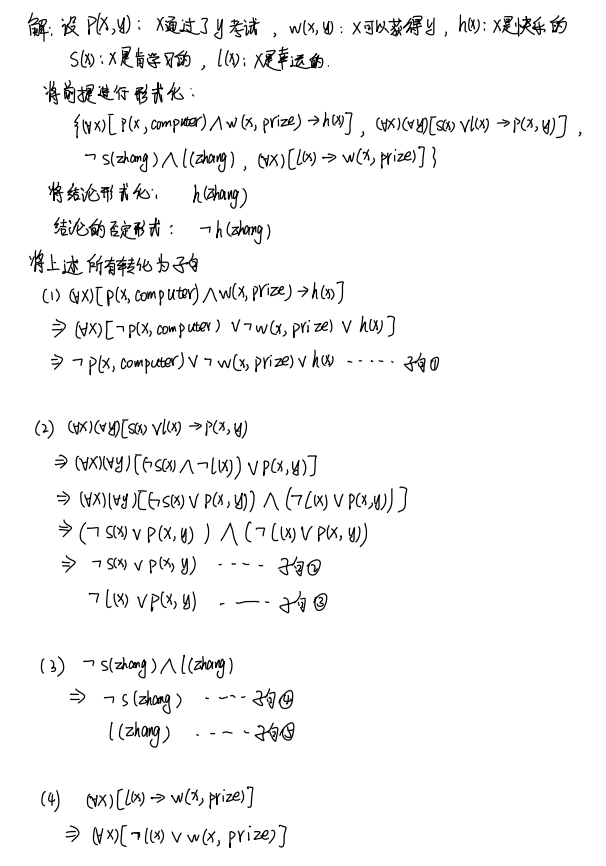 解：设 P(x,y)：x通过了y考试，w(x,y)：x可以获得y，h(x)：x是快乐的
S(x)：x是肯学习的，l(x)：x是幸运的.
将前提进行形式化：
{(∀x)[P(x,computer)∧w(x,prize)→h(x)]，(∀x)(∀y)[s(x)∨l(x)→P(x,y)]，
¬s(zhang)∧l(zhang)，(∀x)[l(x)→w(x,prize)]}
将结论形式化： h(zhang)
结论的否定形式： ¬h(zhang)
将上述所有转化为子句
(1) (∀x)[P(x,computer)∧w(x,prize)→h(x)]
⇒ (∀x)[¬P(x,computer)∨¬w(x,prize)∨h(x)]
⇒ ¬P(x,computer)∨¬w(x,prize)∨h(x) ······ 子句①
(2) (∀x)(∀y)[s(x)∨l(x)→P(x,y)
⇒ (∀x)(∀y)[(¬s(x)∧¬l(x))∨P(x,y)]
⇒ (∀x)(∀y)[(¬s(x)∨P(x,y))∧(¬l(x)∨P(x,y))]
⇒ (¬s(x)∨P(x,y))∧(¬l(x)∨P(x,y))
⇒ ¬s(x)∨P(x,y) ····· 子句②
¬l(x)∨P(x,y) ·—— 子句③
(3) ¬s(zhang)∧l(zhang)
⇒ ¬s(zhang) ····· 子句④
l(zhang) ····· 子句⑤
(4) (∀x)[l(x)→w(x,prize)]
⇒ (∀x)[¬l(x)∨w(x,prize)]